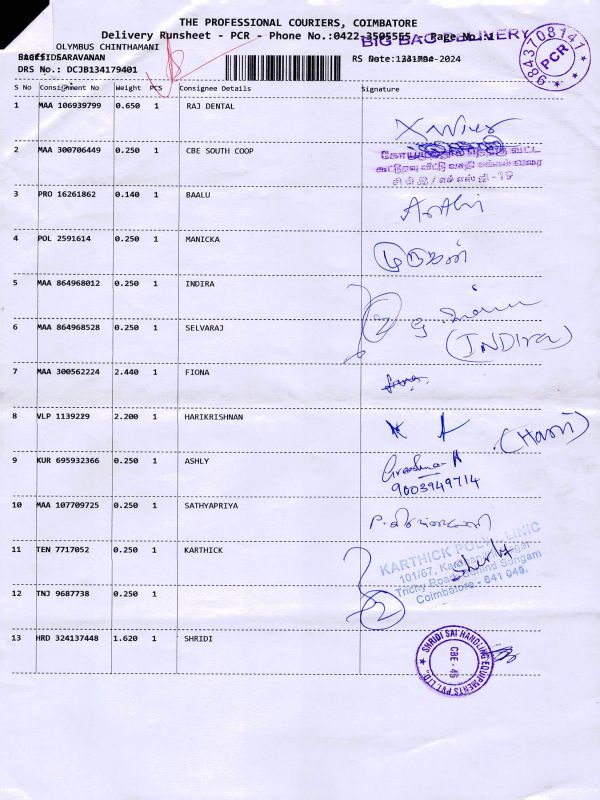 THE PROFESSIONAL COURIERS, COIMBATORE
Delivery Runsheet - PCR - Phone No.:0422-3505555 - Page No.
BIG BAG DELIVERY
9843708141
PCR
OLYMBUS CHINTHAMANI
SARAVANAN
DRS No.: DCJB134179401
S No Consignment No Weight PCS Consignee Details Signature
1 MAA 106939799 0.650 1 RAJ DENTAL
Xavier
2 MAA 300706449 0.250 1 CBE SOUTH COOP
3 PRO 16261862 0.140 1 BAALU
4 POL 2591614 0.250 1 MANICKA
முருகன்
5 MAA 864968012 0.250 1 INDIRA
6 MAA 864968528 0.250 1 SELVARAJ
2
(INDIRA)
7 MAA 300562224 2.440 1 FIONA
8 VLP 1139229 2.200 1 HARIKRISHNAN
(Hari)
9 KUR 695932366 0.250 1 ASHLY
9003949714
10 MAA 107709725 0.250 1 SATHYAPRIYA
11 TEN 7717052 0.250 1 KARTHICK
KARTHICK POLY CLINIC
101/67,
Trichy Road, Behind Sungam
Coimbatore - 641 045.
12 TNJ 9687738 0.250 1
2
13 HRD 324137448 1.620 1 SHRIDI
SHRIDI SAI HANDLING EQUIPMENTS PVT. LTD.
CBE - 45